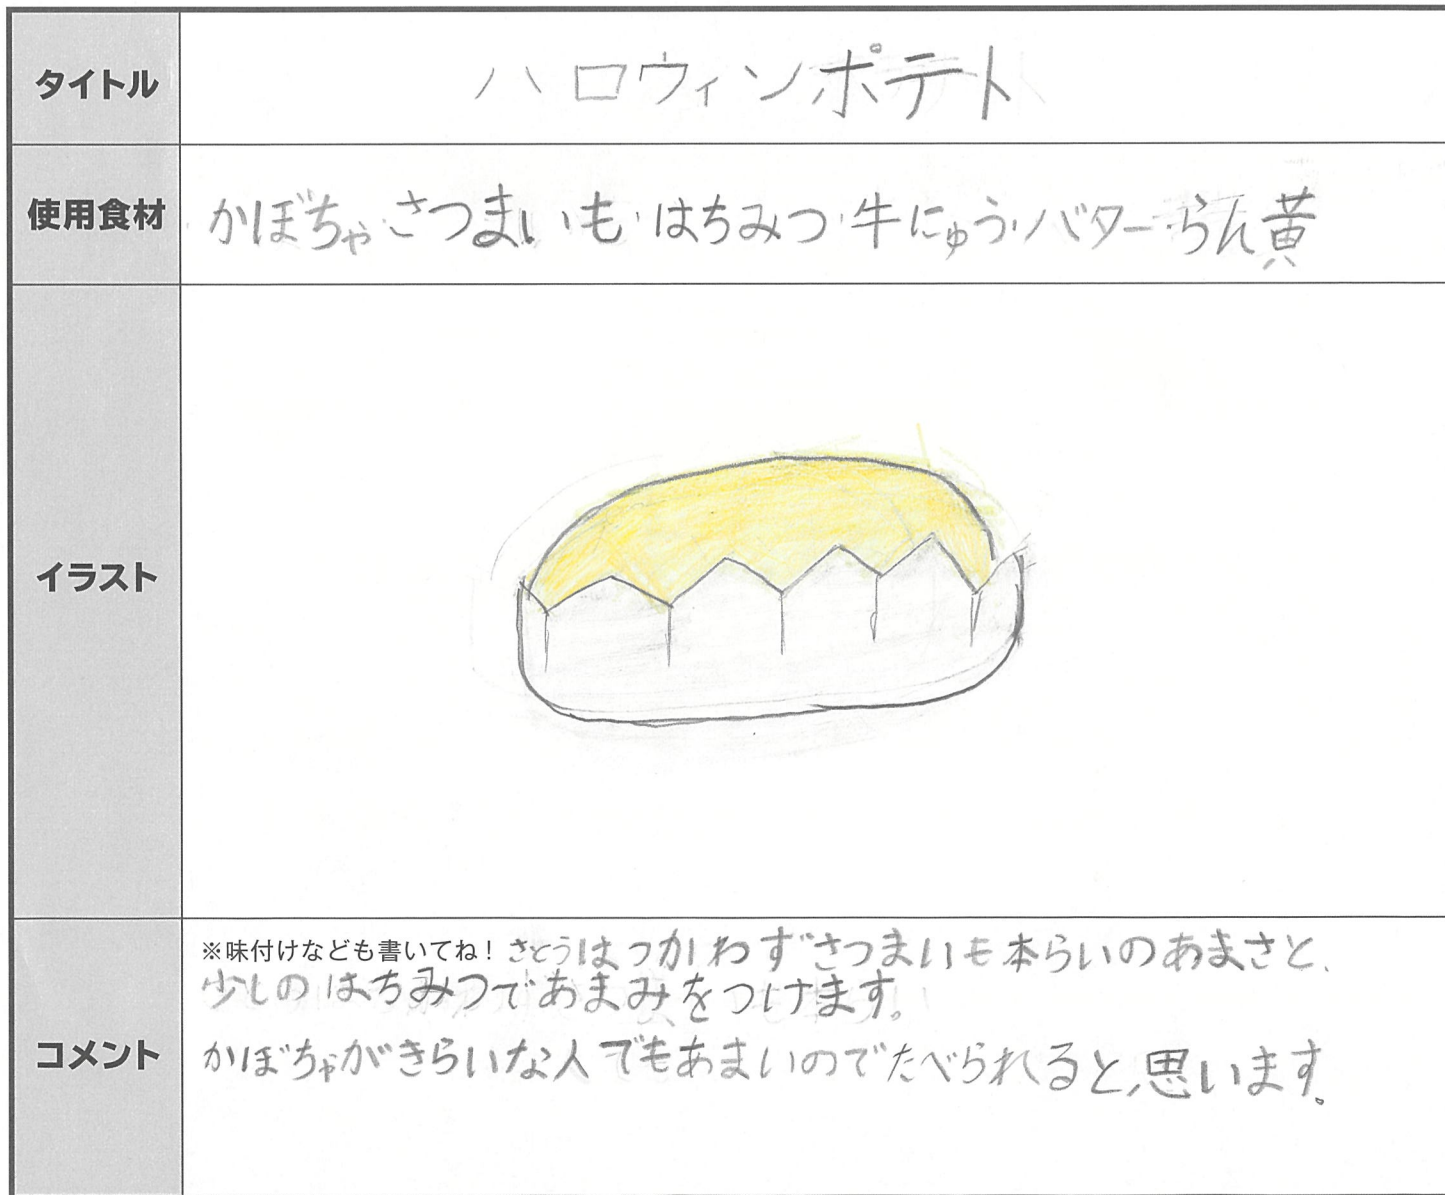 タイトル
ハロウィンポテト
使用食材
かぼちゃ・さつまいも・はちみつ・牛にゅう・バター・らん黄
イラスト
コメント
※味付けなども書いてね！さとうはつかわずさつまいも本らいのあまさと、
少しのはちみつであまみをつけます。
かぼちゃがきらいな人でもあまいのでたべられると、思います。